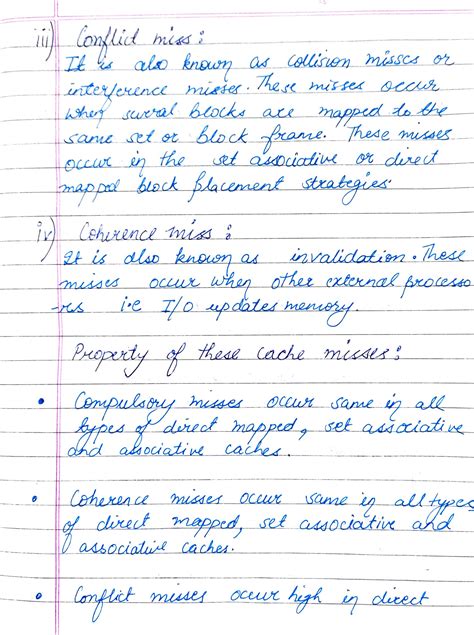 iii) Conflict miss :
It is also known as collision misses or
interference misses. These misses occur
when several blocks are mapped to the
same set or block frame. These misses
occur in the set associative or direct
mapped block placement strategies.
iv) Coherence miss :
It is also known as invalidation. These
misses occur when other external processo
-rs i.e I/O updates memory.
Property of these cache misses :
• Compulsory misses occur same in all
types of direct mapped, set associative
and associative caches.
• Coherence misses occur same in all types
of direct mapped, set associative and
associative caches.
• Conflict misses occur high in direct